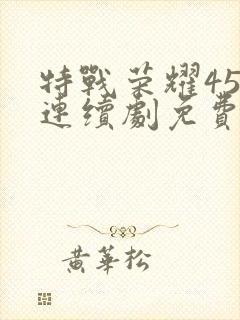 特戰荣耀45
連續劇免費
黃華松